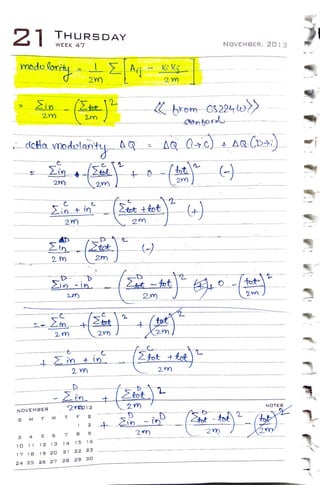 21 THURSDAY
WEEK 47
NOVEMBER, 2013
modularity = 1/2m Σ [Aij - KiKj/2m]
= Σin/2m - (Σtot/2m)² << from CS224W >>
stanford
delta modularity ΔQ = ΔQ (i→c) + ΔQ (D→i)
= Σin^C/2m - (Σtot^C/2m)² + 0 - (tot^i/2m)² (-)
Σin^C + in^C/2m - (Σtot^C + tot^i/2m)² (+)
Σin^D/2m - (Σtot^D/2m)² (-)
Σin^D - in^D/2m - (Σtot^D - tot^i/2m)² + 0 - (tot^i/2m)²
= - Σin^C/2m + (Σtot^C/2m)² + (tot^i/2m)²
+ Σin^C + in^C/2m - (Σtot^C + tot^i/2m)²
- Σin^D/2m + (Σtot^D/2m)²
+ Σin^D - in^D/2m - (Σtot^D - tot^i/2m)² - (tot^i/2m)²
NOTES
NOVEMBER 2013
S M T W T F S
1 2
3 4 5 6 7 8 9
10 11 12 13 14 15 16
17 18 19 20 21 22 23
24 25 26 27 28 29 30